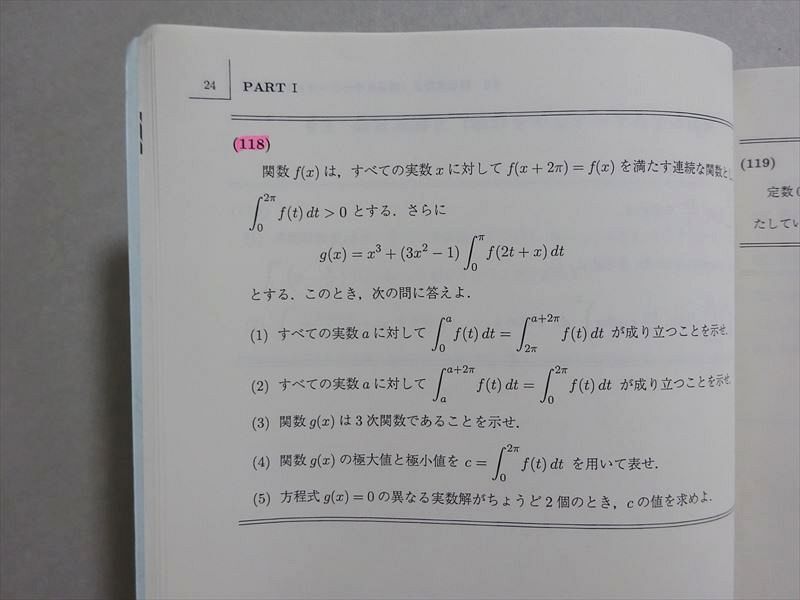 24 PART I
(118)
関数 f(x) は，すべての実数 x に対して f(x + 2π) = f(x) を満たす連続な関数とし
∫_0^{2π} f(t) dt > 0 とする．さらに
g(x) = x^3 + (3x^2 − 1) ∫_0^π f(2t + x) dt
とする．このとき，次の問に答えよ．
(1) すべての実数 a に対して ∫_0^a f(t) dt = ∫_{2π}^{a+2π} f(t) dt が成り立つことを示せ.
(2) すべての実数 a に対して ∫_a^{a+2π} f(t) dt = ∫_0^{2π} f(t) dt が成り立つことを示せ
(3) 関数 g(x) は 3 次関数であることを示せ．
(4) 関数 g(x) の極大値と極小値を c = ∫_0^{2π} f(t) dt を用いて表せ．
(5) 方程式 g(x) = 0 の異なる実数解がちょうど 2 個のとき，c の値を求めよ．
(119)
定数
たしてい